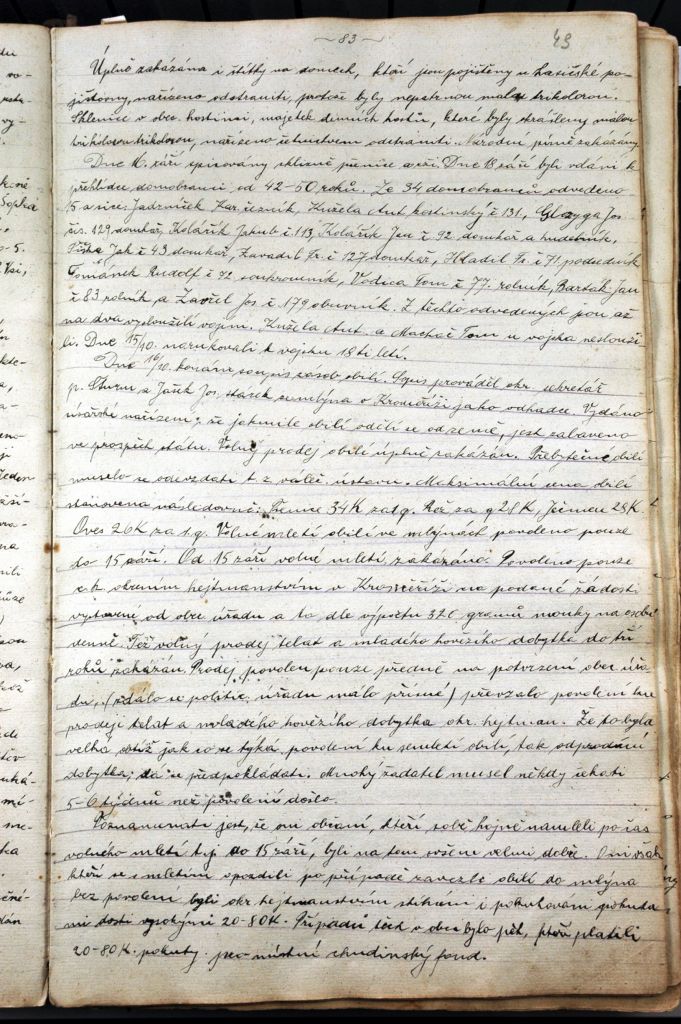 — 83 —
49
Úplně zakázána i štítky na domech, kteří jsou pojištěny u hasičské po-
jišťovny, nařízeno odstraniti, protože byly nepatrnou malou trikolorou.
Sklenice v obec. hostinci, majetek denních hostů, které byly malou
trikolorou, nařízeno četnictvem odstraniti. Národní písně zakázány.
Dne 16. září spisovány sklizně pšenice a rži. Dne 18 září byli vdáni k
přehlídce domobranci od 42–50 roků. Ze 34 domobranců odvedeno
15 a sice: Jadrníček Kar. řezník, Kužela Ant. hostinský č 131, Glozyga Jos
čís. 129 domkář, Kolářík Jakub č 113, Kolářík Jan č 92 domkář a hudebník,
Jak č 43 domkář, Zavadil Fr. č 127 domkář, Hladil Fr. č 71, podsedník
Tománek Rudolf č 72 soukromník, Vodica Tom č 77. rolník, Barták Jan
č 83 rolník a Zavřel Jos č 179 obuvník. Z těchto odvedených jsou až
na dva vysloužilí vojíni. Kužela Ant. a Machač Tom u vojska neslouži-
li. Dne 15/10. narukovali k vojsku 18 ti letí.
Dne 16/10. konána soupis zásob obilí. Spis prováděl okr. sekretář
p. Šturm a Jašík Jos, stárek ze mlýna v Kroměříži jako odhadce. Vydáno
císařské nařízení, že jakmile obilí odčlí se od země, jest zabaveno
ve prospěch státu. Volný prodej obilí úplně zakázán. Přebytečné obilí
muselo se odevzdati t. z. váleč. ústavu. Maksimální cena obilí
stanovena následovně: Pšenice 34 K za 1 q. Rož za q 28 K, Ječmen 28 K
Oves 26 K za 1. q. Volné mletí obilí ve mlýnách povoleno pouze
do 15 září. Od 15 září volné mletí zakázáno. Povoleno pouze
c. k. okresním hejtmanstvím v Kroměříži na podané žádosti
vystavené od obec. úřadu a to dle výpočtu 320 gramů mouky na osobu
denně. Též volný prodej telat a mladého hovězího dobytka do tří
roků zakázán. Prodej povolen pouze předně na potvrzení obec. úřa-
du, (zdálo se politic. úřadu málo přísné) převzalo povolení ku
prodeji telat a mladého hovězího dobytka okr. hejtman. Že to byla
velká obtíž jak co se týká, povolení ku semletí obilí, tak odprodání
dobytka, dá se předpokládati. Mnohý žadatel musel někdy čekati
5–6 týdnů než povolení došlo.
Poznamenati jest, že oni občani, kteří sobě hojně namleli po čas
volného mletí t.j. do 15 září, byli na tom velmi dobře. Oni však
kteří se s mletím spozdili po případě zavezli obilí do mlýna
bez povolení byli okr. hejtmanstvím stíháni i pokutováni pokuta-
mi dosti vysokými 20-80 K. Případů těch v obci bylo pět, kteří platili
20-80 K. pokuty pro místní chudinský fond.